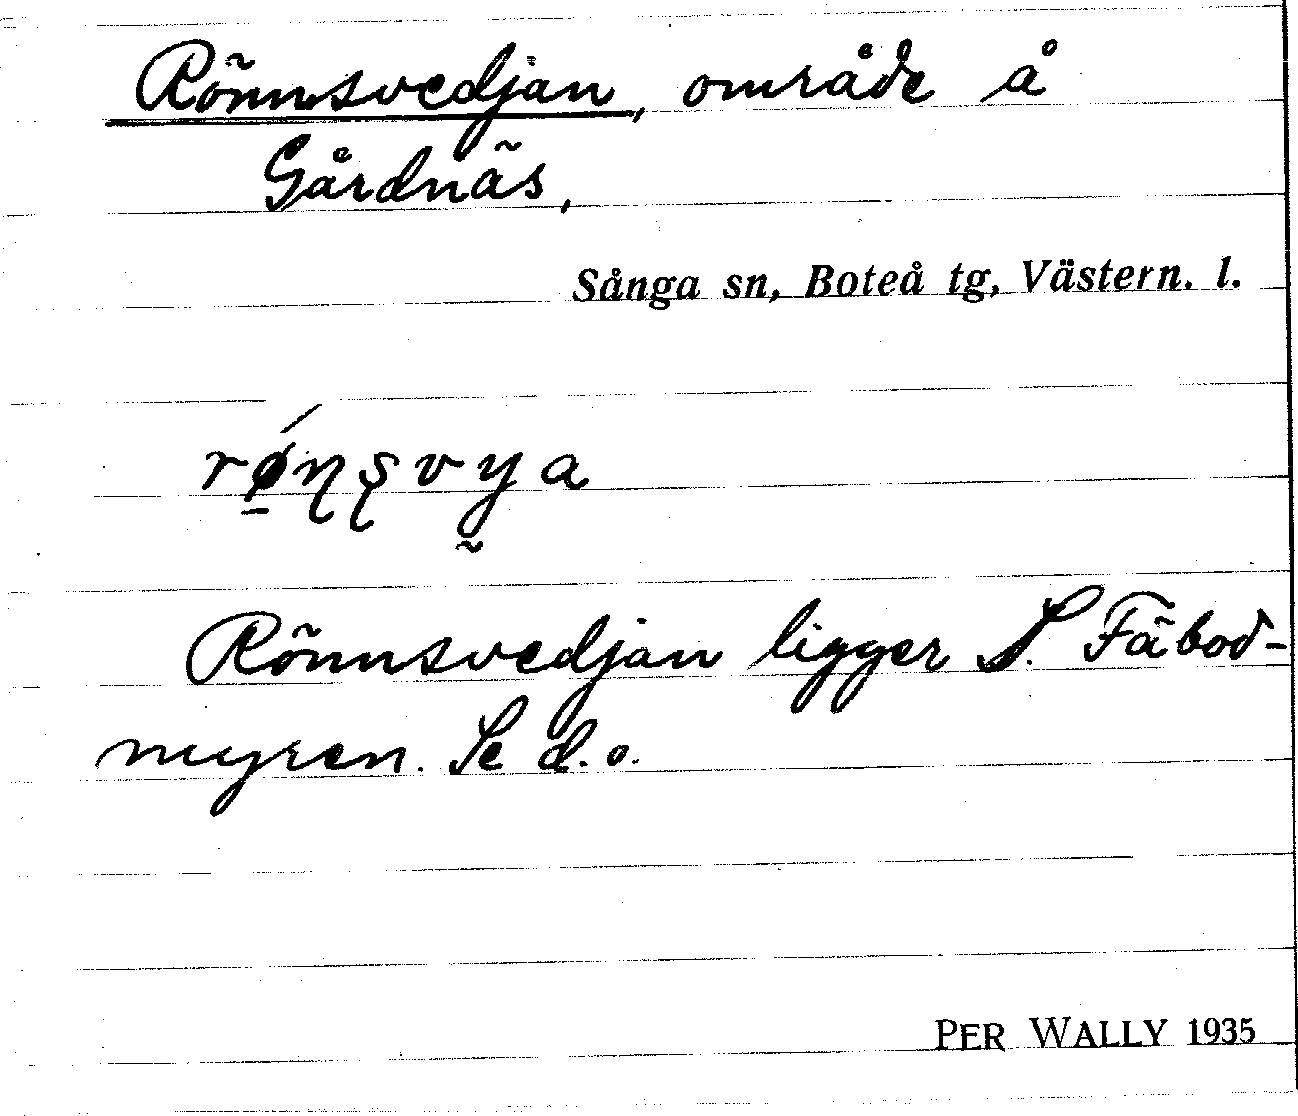 Rönnsvedjan, område å
Gårdnäs,
Sånga sn, Boteå tg, Västern. l.
rǿ̠ɳʂvy̰a
Rönnsvedjan ligger S. Fäbod-
myren. Se d.o.
PER WALLY 1935